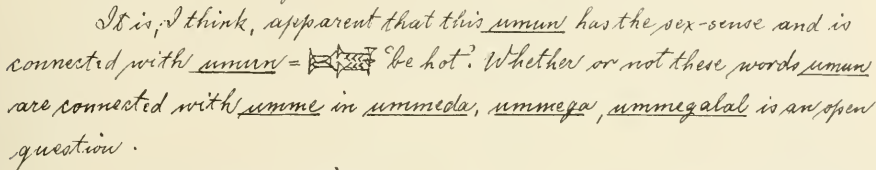 It is, I think, apparent that this umun has the sex-sense and is
connected with umun = 'be hot'. Whether or not these words umun
are connected with umme in ummeda, ummega, ummegalal is an open
question.